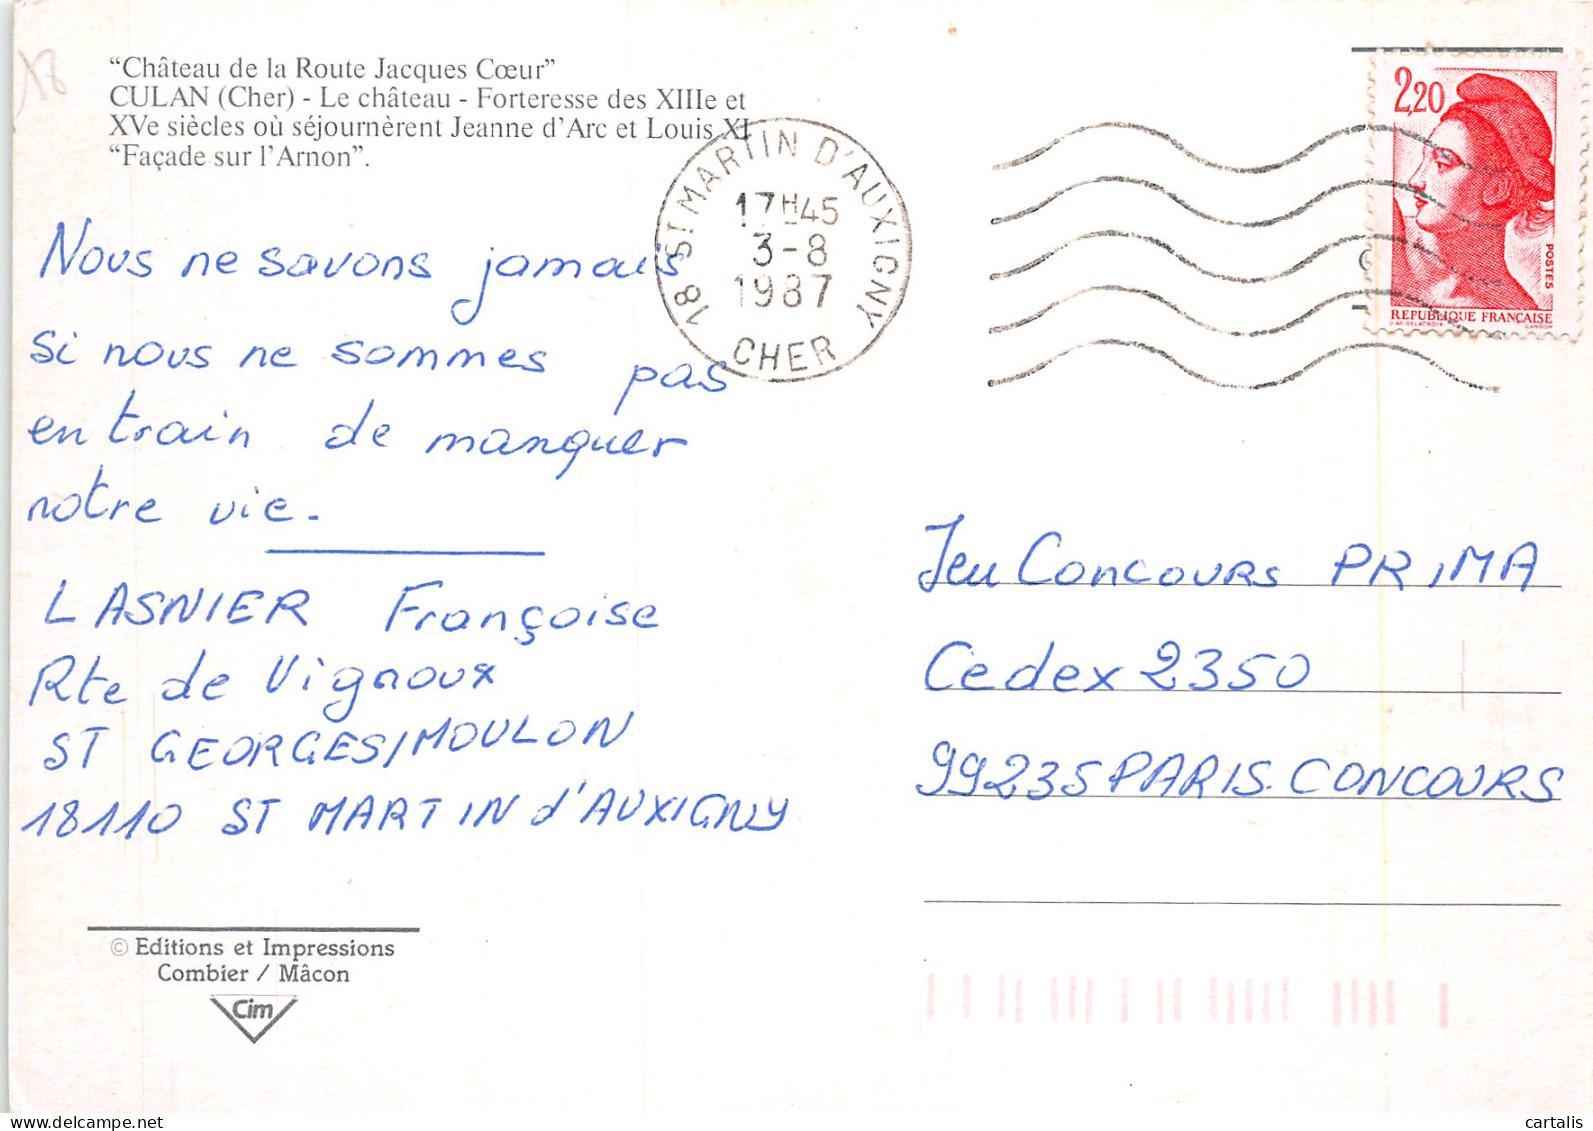 18
“Château de la Route Jacques Cœur”
CULAN (Cher) - Le château - Forteresse des XIIIe et
XVe siècles où séjournèrent Jeanne d’Arc et Louis XI
“Façade sur l’Arnon”.
18 ST MARTIN D'AUXIGNY
17H45
3-8
1987
CHER
2,20
POSTES
REPUBLIQUE FRANÇAISE
D'AP. DELACROIX GANDON
Nous ne savons jamais
si nous ne sommes pas
en train de manquer
notre vie.
LASNIER Françoise
Rte de Vignoux
ST GEORGES/MOULON
18110 ST MARTIN d'AUXIGNY
Jeu Concours PRIMA
Cedex 2350
99235 PARIS. CONCOURS
© Editions et Impressions
Combier / Mâcon
Cim
www.delcampe.net
cartalis